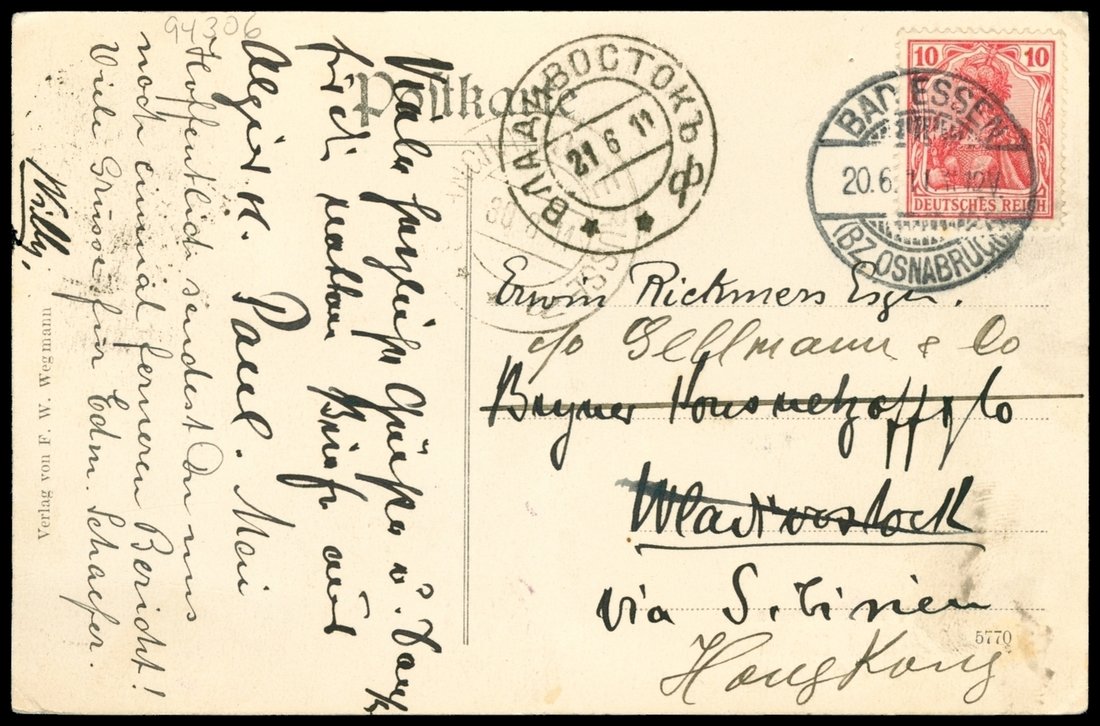 94306
Postkarte
ВЛАДИВОСТОКЪ
21 6 11
10 10
DEUTSCHES REICH
BAD ESSEN
20.6. 12V.
(BZ. OSNABRÜCK)
Erwin Rickmers Esqr.
c/o Gellmann & Co
Bryner & Co
Wladivostock
via Sibirien
HongKong
5770
Viele herzliche Grüsse u. Dank
für Brief aus
Algier v. Paul. Mein
Hoffentlich sendest Du uns
noch einmal ferneren Bericht!
Viele Grüsse für Edm. Schaefer.
Willy.
Verlag von F. W. Wegmann